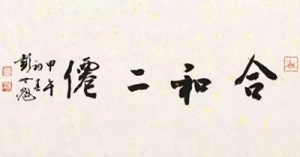 合和二僊
甲午
初春
彭